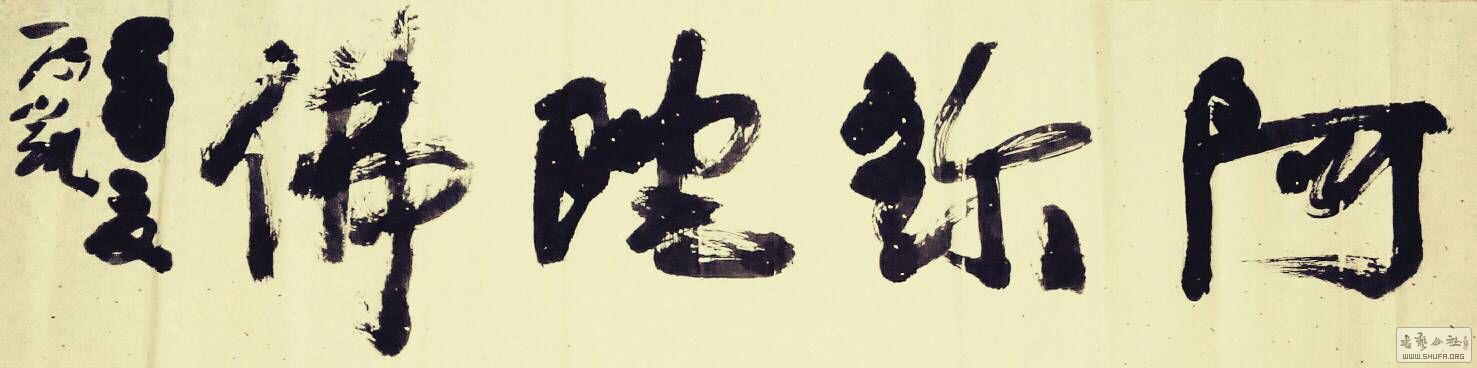 阿弥陀佛
书艺公社
WWW.SHUFA.ORG